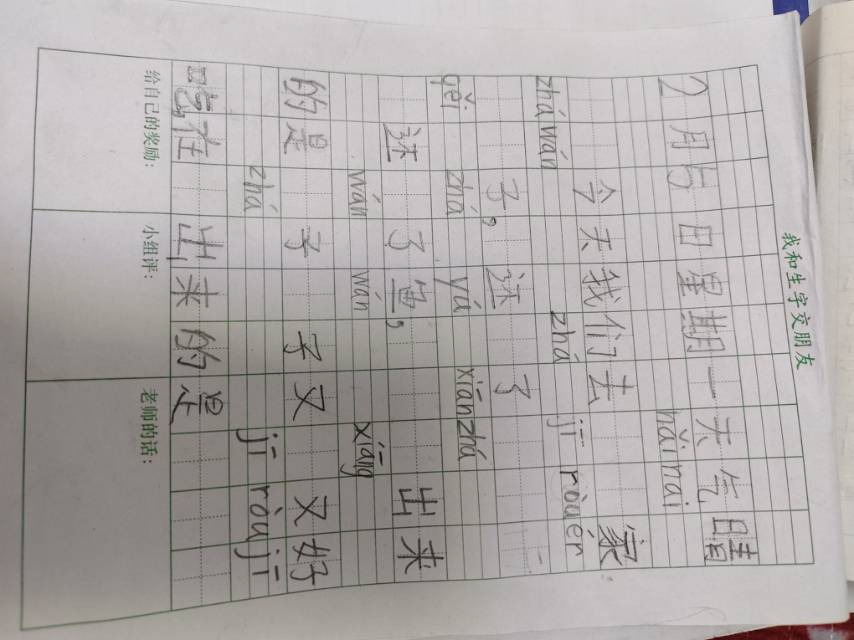 我和生字交朋友
2月5日星期一天气晴
nǎinai
今天我们去 家
zháwán zhá jī ròuér
子,还 了
qěi zhá yú xiānzhá
还 了鱼, 出来
wán wán xiāng
的是 子 子又 又好
zhá jī ròujī
吃在 出来的是
给自己的奖励: 小组评: 老师的话: